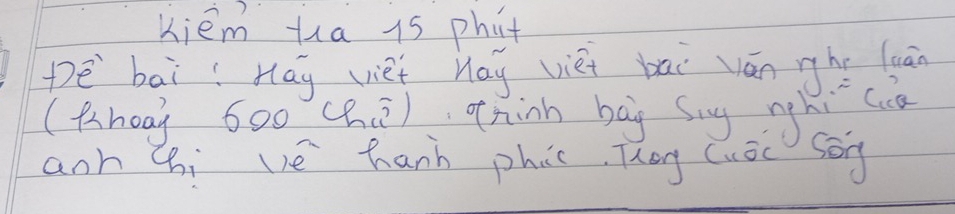 Kiểm tra 15 phút
Đề bài : Hãy viết Hãy viết bài văn nghị luận
(khoảng 600 chữ). trình bày Suy nghĩ của
anh chị về hạnh phúc. Trong cuộc sống